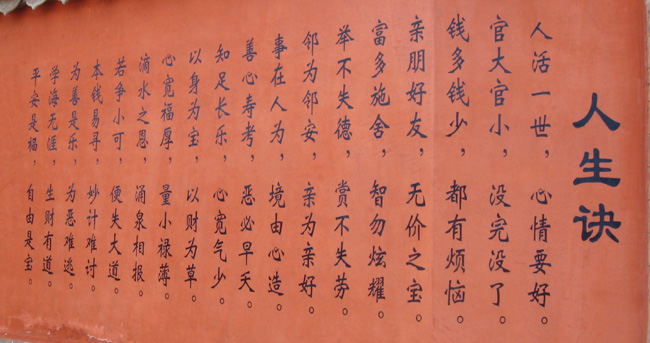 人生诀
人活一世，心情要好。
官大官小，没完没了。
钱多钱少，都有烦恼。
亲朋好友，无价之宝。
富多施舍，智勿炫耀。
举不失德，赏不失劳。
邻为邻安，亲为亲好。
事在人为，境由心造。
善心寿考，恶必早夭。
知足长乐，心宽气少。
以身为宝，以财为草。
心宽福厚，量小禄薄。
滴水之恩，涌泉相报。
若争小可，便失大道。
本钱易寻，妙计难讨。
为善是乐，为恶难逃。
学海无涯，生财有道。
平安是福，自由是宝。